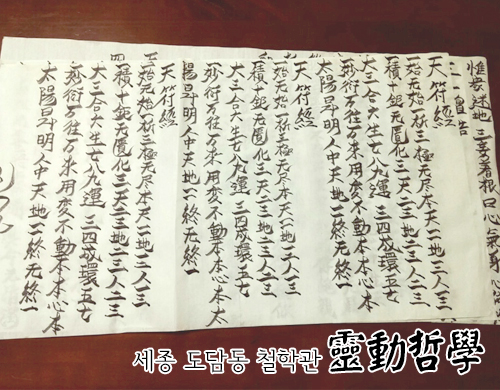 惟衆迷地 三妄着根
天符経
一始无始一析三極无尽本天一一地一二人一三
一積十鉅无匱化三天二三地二三人二三
大三合六生七八九運 三四成環五七
一妙衍万往万来用変不動本本心本
太陽昻明人中天地一一終无終一
天符経
一始无始一析三極无尽本天一一地一二人一三
一積十鉅无匱化三天二三地二三人二三
大三合六生七八九運 三四成環五七
一妙衍万往万来用変不動本本心本太
陽昻明人中天地一一終无終一
天符経
一始无始一析三極无尽本天一一地一二人一三
一積十鉅无匱化三天二三地二三人二三
大三合六生七八九運 三四成環五七
一妙衍万往万来用変不動本本心本
太陽昻明人中天地一一終无終一
세종 도담동 철학관 靈動哲學